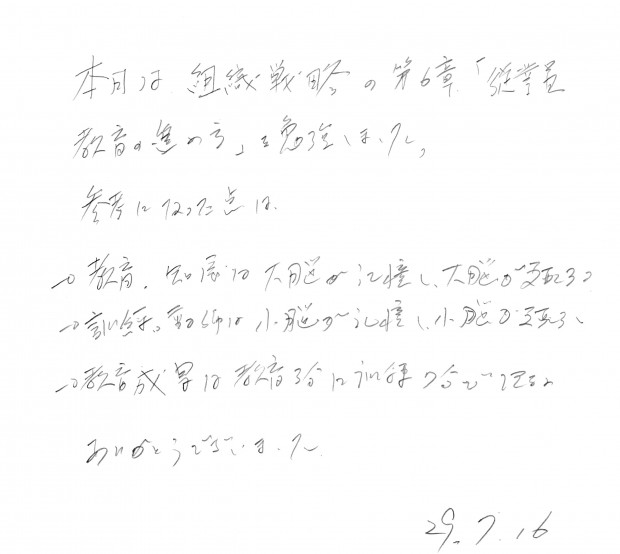 本日は 組織戦略の第6章「従業員
教育の進め方」を勉強しました。
参考になった点は、
→教育、知識は大脳が記憶し、大脳が支配する
→訓練。動作は小脳が記憶し、小脳が支配する、
→教育成果は教育3分に訓練7分で
ありがとうございました
29.7.16